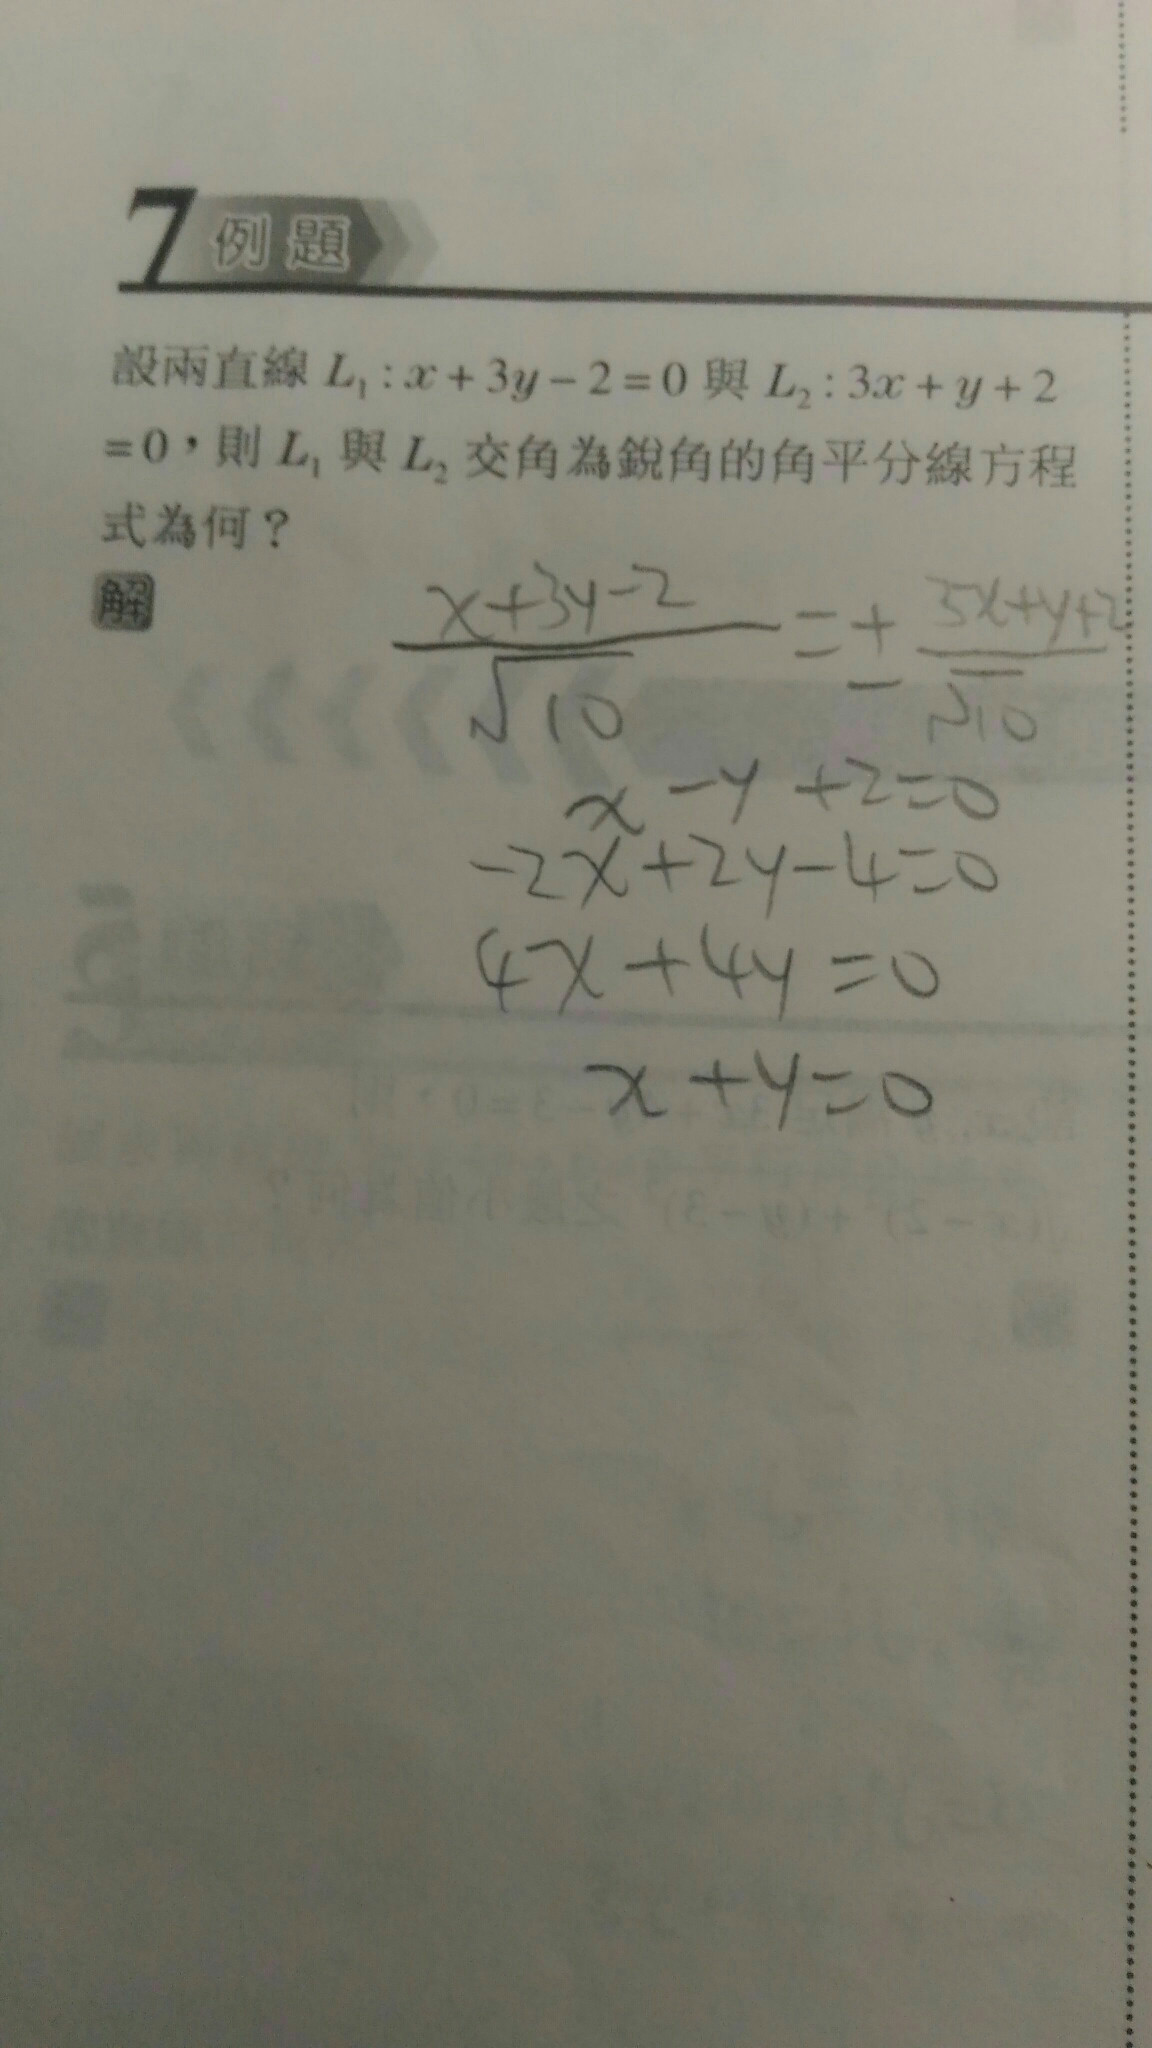 7 例題
設兩直線 L₁ : x + 3y − 2 = 0 與 L₂ : 3x + y + 2
= 0，則 L₁ 與 L₂ 交角為銳角的角平分線方程
式為何？
解
(x+3y-2)/√10 = ± (3x+y+2)/√10
x - y + 2 = 0
-2x + 2y - 4 = 0
4x + 4y = 0
x + y = 0